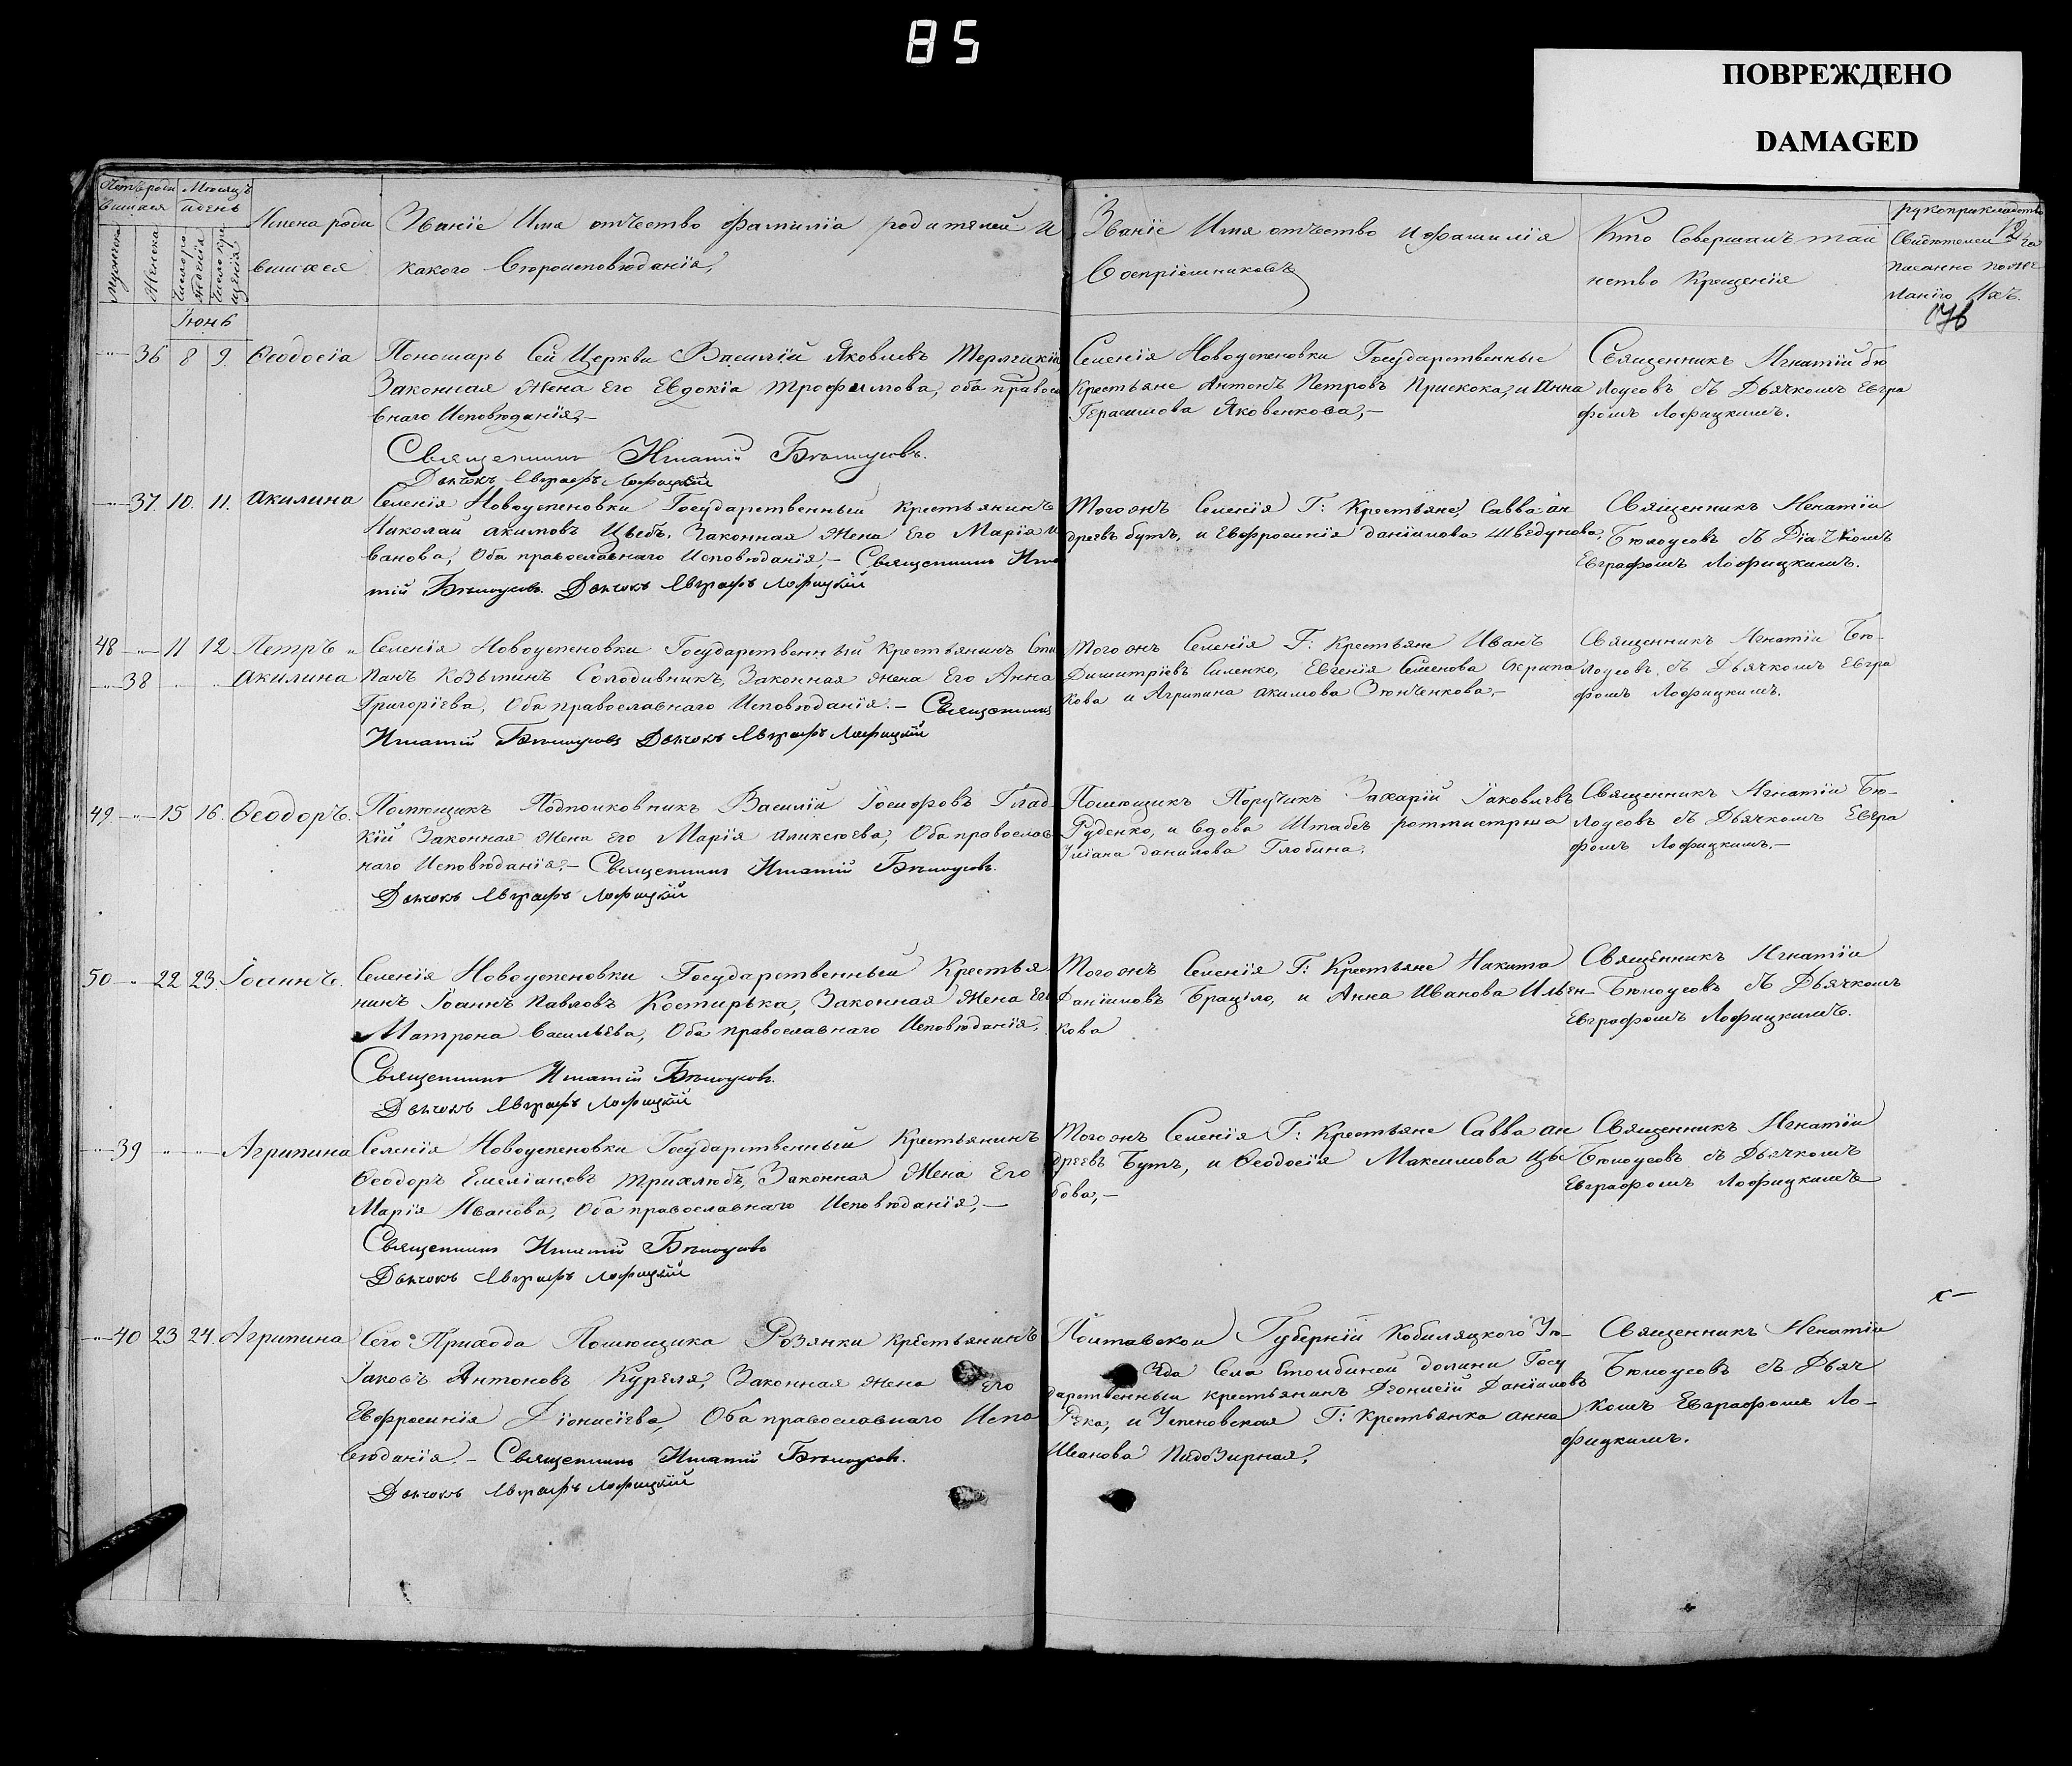 85
ПОВРЕЖДЕНО
DAMAGED
Счетъ роди
вшихся
Мѣсяцъ
и день
Имена роди
вшихся
Званіе Имя отчество фамилія родителей и
какого вѣроисповѣданія,
Званіе Имя отчество и фамилія
Воспріемниковъ
Кто Совершалъ таи
нство Крещенія
рукоприкладство
Свидетелей за
писанно по же
ланію Ихъ.
Мужеска
Женска
Число ро
жденія
Число кре
щенія
Іюнь
36 8 9. Ѳеодосіа
Пономарь Сей Церкви Василій Яковлевъ
Законная Жена Его Евдокіа Трофимова, оба правосл
внаго Исповѣданія,—
Священникъ Игнатій Бѣлоусовъ.
Дьячокъ Евграфъ Лофицкій
Селенія Новоуспеновки Государственные
Крестьяне Антонъ Петровъ Прискока, и Анна
Герасимова Яковенкова,—
Священникъ Игнатій Бѣ
лоусовъ съ Дьячкомъ Евгра
фомъ Лофицкимъ.
37. 10. 11. Акилина
Селенія Новоуспеновки Государственный крестьянинъ
Николай Акимовъ Цвебъ, Законная Жена Его Марія И
ванова, Оба православнаго Исповѣданія,— Священникъ Игна
тій Бѣлоусовъ. Дьячокъ Евграфъ Лофицкій
Того онъ Селенія Г: Крестьяне, Савва Ан
дреевъ Бутъ, и Евфросинія Даніилова Шведунова,
Священникъ Игнатіи
Бѣлоусовъ съ Діачкомъ
Евграфомъ Лофицкимъ.
48 11 12 Петръ
38 Акилина
Селенія Новоуспеновки Государственный Крестьянинъ Сте
панъ Козьминъ Солодивникъ, Законная жена Его Анна
Григоріева, Оба православнаго Исповѣданія.— Священникъ
Игнатій Бѣлоусовъ Дьячокъ Евграфъ Лофицкій
Того онъ Селенія Г: Крестьяне Иванъ
Димитріевъ Силенко, Евгенія Семенова Скрипа
кова и Агрипина Акимова Зюнченкова,—
Священникъ Игнатіи Бѣ-
лоусовъ, съ Дьячкомъ Евгра
фомъ Лофицкимъ.
49 15 16. Ѳеодоръ.
Помѣщикъ Подполковникъ Василіи Іосифовъ Глад-
кій Законная Жена его Марія Аликсѣева, Оба православ
наго Исповѣданія,— Священникъ Игнатій Бѣлоусовъ.
Дьячокъ Евграфъ Лофицкій
Помѣщикъ Поручикъ Захарій Іаковлевъ
Руденко, и вдова Штабсъ ротмистрша
Уліана Данилова Глобина.
Священникъ Игнатіи Бѣ-
лоусовъ съ Дьячкомъ Евгра
фомъ Лофицкимъ.—
50 22 23. Іоаннъ.
Селенія Новоуспеновки Государственный Крестья
нинъ Іоаннъ Павловъ Костирька, Законная Жена Его
Матрона Васильева, Оба православнаго Исповѣданія,
Священникъ Игнатій Бѣлоусовъ.
Дьячокъ Евграфъ Лофицкій
Того онъ Селенія Г: Крестьяне Никита
Даніиловъ Браціло, и Анна Иванова Ильен-
кова
Священникъ Игнатіи
Бѣлоусовъ съ Дьячкомъ
Евграфомъ Лофицкимъ.
39 Агрипина
Селенія Новоуспеновки Государственный Крестьянинъ
Ѳеодоръ Емеліановъ Трихлюбъ, Законная Жена Его
Марія Иванова, Оба православнаго Исповѣданія,—
Священникъ Игнатій Бѣлоусовъ
Дьячокъ Евграфъ Лофицкій
Того онъ Селенія Г: Крестьяне Савва Ан
дреевъ Бутъ, и Ѳеодосія Максимова Цве
бова,—
Священникъ Игнатіи
Бѣлоусовъ съ Дьячкомъ
Евграфомъ Лофицкимъ
40 23 24. Агрипина
Сего Прихода Помѣщика Розянки крестьянинъ
Іаковъ Антоновъ Куреля, Законная жена Его
Евфросинія Діонисіева, Оба православнаго Испо
вѣданія.— Священникъ Игнатій Бѣлоусовъ.
Дьячокъ Евграфъ Лофицкій
Полтавской Губерніи Кобиляцкого Уѣ-
зда Села Столбиной долини Госу
дарственный крестьянинъ Деонисій Даніиловъ
Река, и Успеновская Г: крестьянка Анна
Иванова Пидозирная,
Священникъ Игнатіи
Бѣлоусовъ съ Дьяч
комъ Евграфомъ Ло-
фицкимъ.